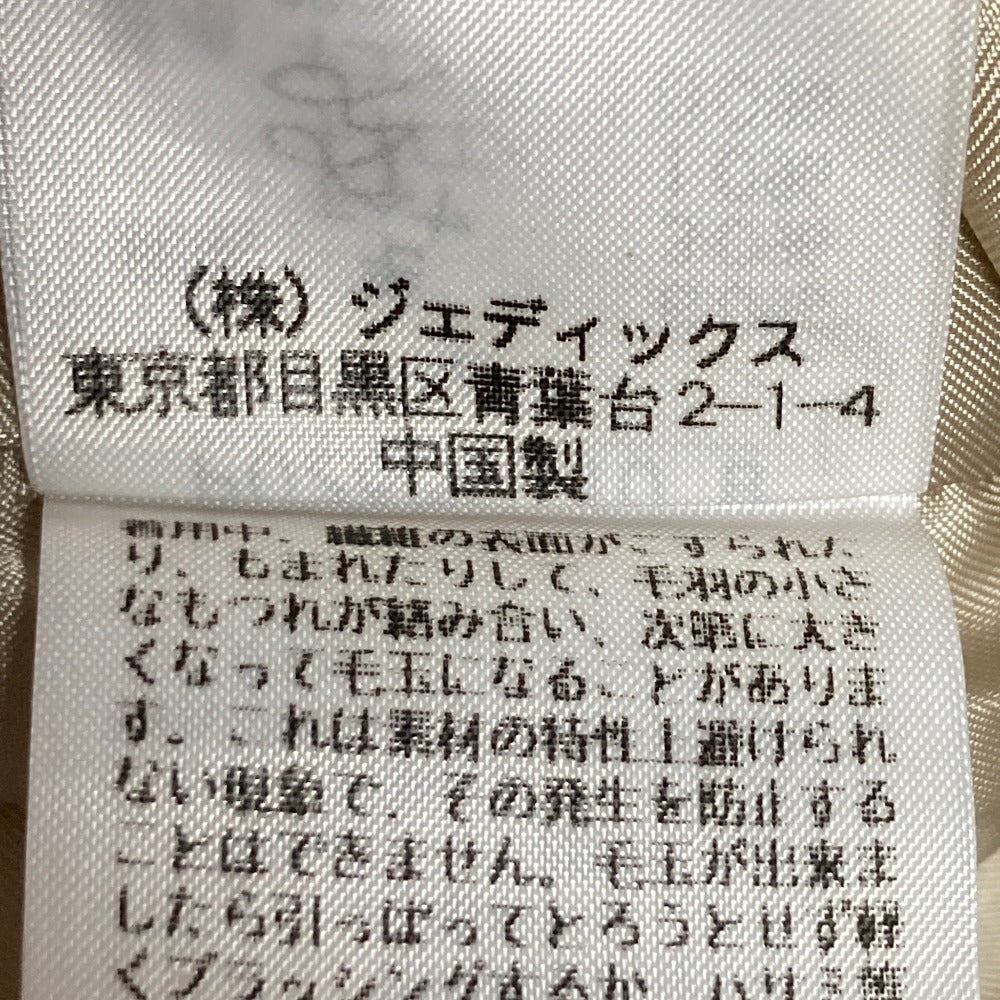 (株) ジェディックス
東京都目黒区青葉台2-1-4
中国製
着用中、繊維の表面がこすられた
り、もまれたりして、毛羽の小さ
なもつれが絡み合い、次第に大き
くなって毛玉になることがありま
す。これは素材の特性上避けられ
ない現象で、その発生を防止する
ことはできません。毛玉が出来ま
したら引っぱってとろうとせず軽
くブラッシングするか、ハサミ等